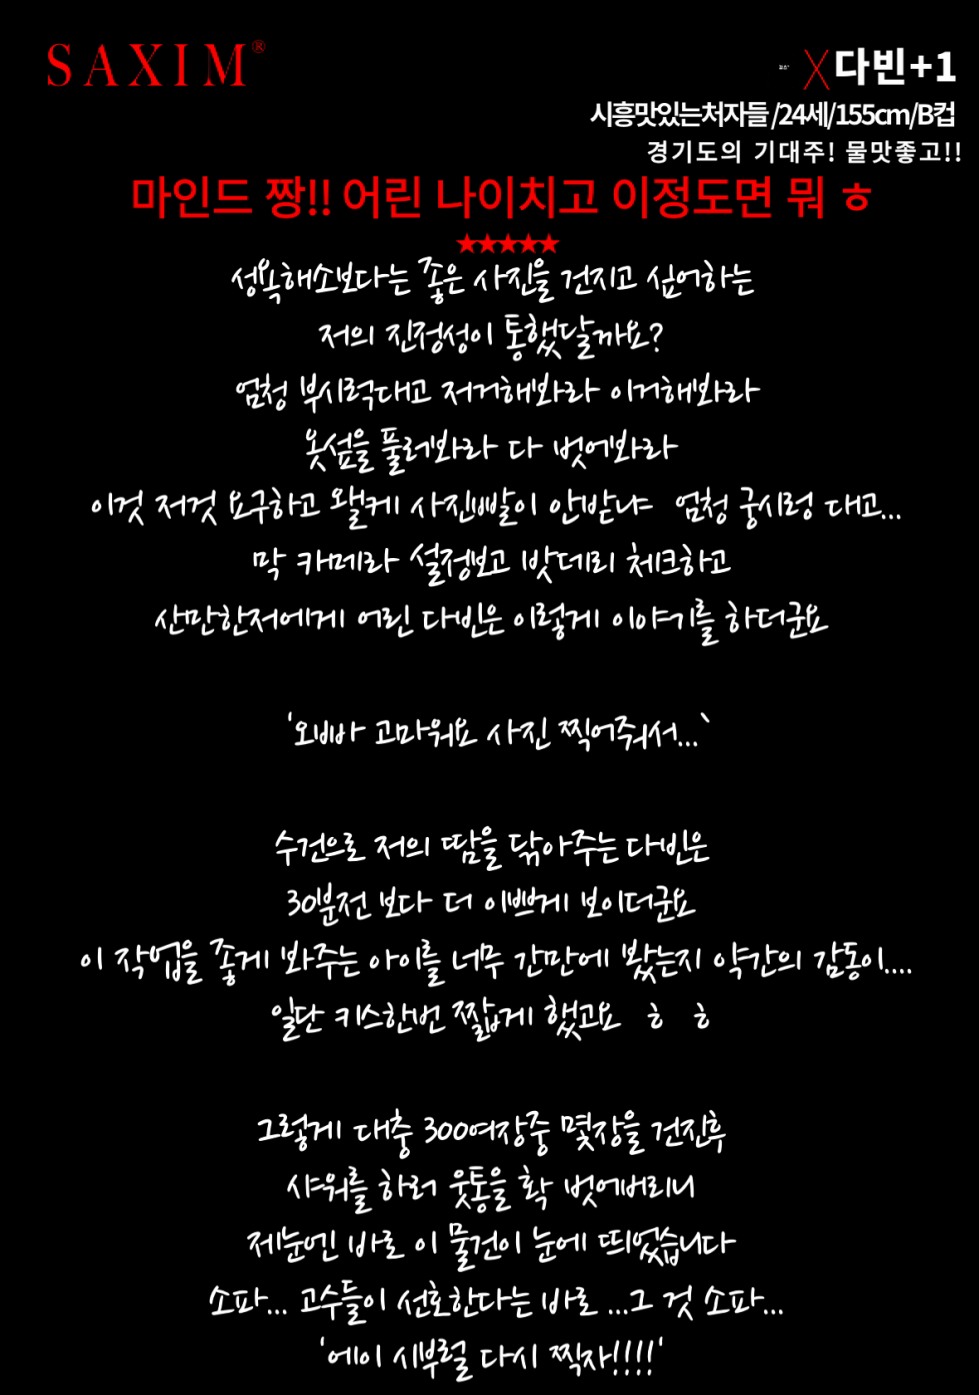 SAXIM®
X다빈+1
시흥맛있는처자들/24세/155cm/B컵
경기도의 기대주! 물맛좋고!!
마인드 짱!! 어린 나이치고 이정도면 뭐 ㅎ
★★★★★
성욕해소보다는 좋은 사진을 건지고 싶어하는
저의 진정성이 통했달까요?
엄청 부시럭대고 저거해봐라 이거해봐라
옷섶을 풀러봐라 다 벗어봐라
이것 저것 요구하고 왤케 사진빨이 안받냐 엄청 궁시렁 대고...
막 카메라 설정보고 밧데리 체크하고
산만한저에게 어린 다빈은 이렇게 이야기를 하더군요
'오빠 고마워요 사진 찍어줘서...`
수건으로 저의 땀을 닦아주는 다빈은
30분전 보다 더 이쁘게 보이더군요
이 작업을 좋게 봐주는 아이를 너무 간만에 봤는지 약간의 감동이....
일단 키스한번 짧게 했고요 ㅎ ㅎ
그렇게 대충 300여장중 몇장을 건진후
샤워를 하러 웃통을 확 벗어버리니
제눈엔 바로 이 물건이 눈에 띄었습니다
소파... 고수들이 선호한다는 바로 ...그 것 소파...
'에이 시부럴 다시 찍자!!!!'